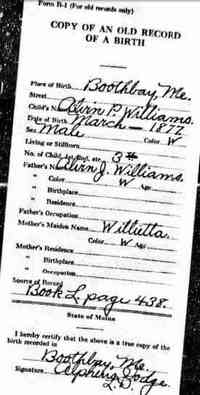 Form B-1 (For old records only)
COPY OF AN OLD RECORD
OF A BIRTH
Place of Birth Boothbay, Me.
Street
Child's Name Alvin P. Williams.
Date of Birth March — 1877
Sex Male Color W
Living or Stillborn
No. of Child, 1st, 2nd, etc. 3
Father's Name Alvin J. Williams.
" Color W Age
" Birthplace
" Residence
Father's Occupation
Mother's Maiden Name Willutta
" Color W Age
Mother's Residence
" Birthplace
" Occupation
Source of Record
Book L, page 438.
State of Maine
I hereby certify that the above is a true copy of the
birth recorded in
Boothbay, Me.
Signature Dodge.